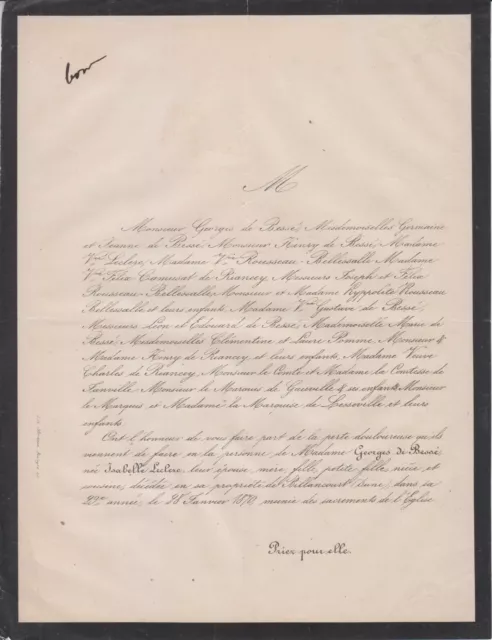 bon
M
Monsieur Georges de Bessé, Mesdemoiselles Germaine
et Jeanne de Bessé, Monsieur Henry de Bessé, Madame
Vve Leclerc, Madame Vve Rousseau-Bellessalle, Madame
Vve Félix Camusat de Riancey, Messieurs Joseph et Félix
Rousseau-Bellessalle, Monsieur et Madame Hyppolite Rousseau
Bellessalle et leurs enfants, Madame Vve Gustave de Bessé,
Messieurs Léon et Edouard de Bessé, Mademoiselle Marie de
Bessé, Mesdemoiselles Clémentine et Laure Pomme, Monsieur &
Madame Henry de Riancey et leurs enfants, Madame Veuve
Charles de Riancey, Monsieur le Comte et Madame la Comtesse de
Monsieur le Marquis de & ses enfants, Monsieur
le Marquis et Madame la Marquise de et leurs
enfants.
Ont l'honneur de vous faire part de la perte douloureuse qu'ils
viennent de faire en la personne de Madame Georges de Bessé
née Isabelle Leclerc, leur épouse, mère, fille, petite fille, nièce et
cousine, décédée en sa propriété de dans sa
année, le 28 Janvier 1870, munie des sacrements de l'Eglise
Priez pour elle.